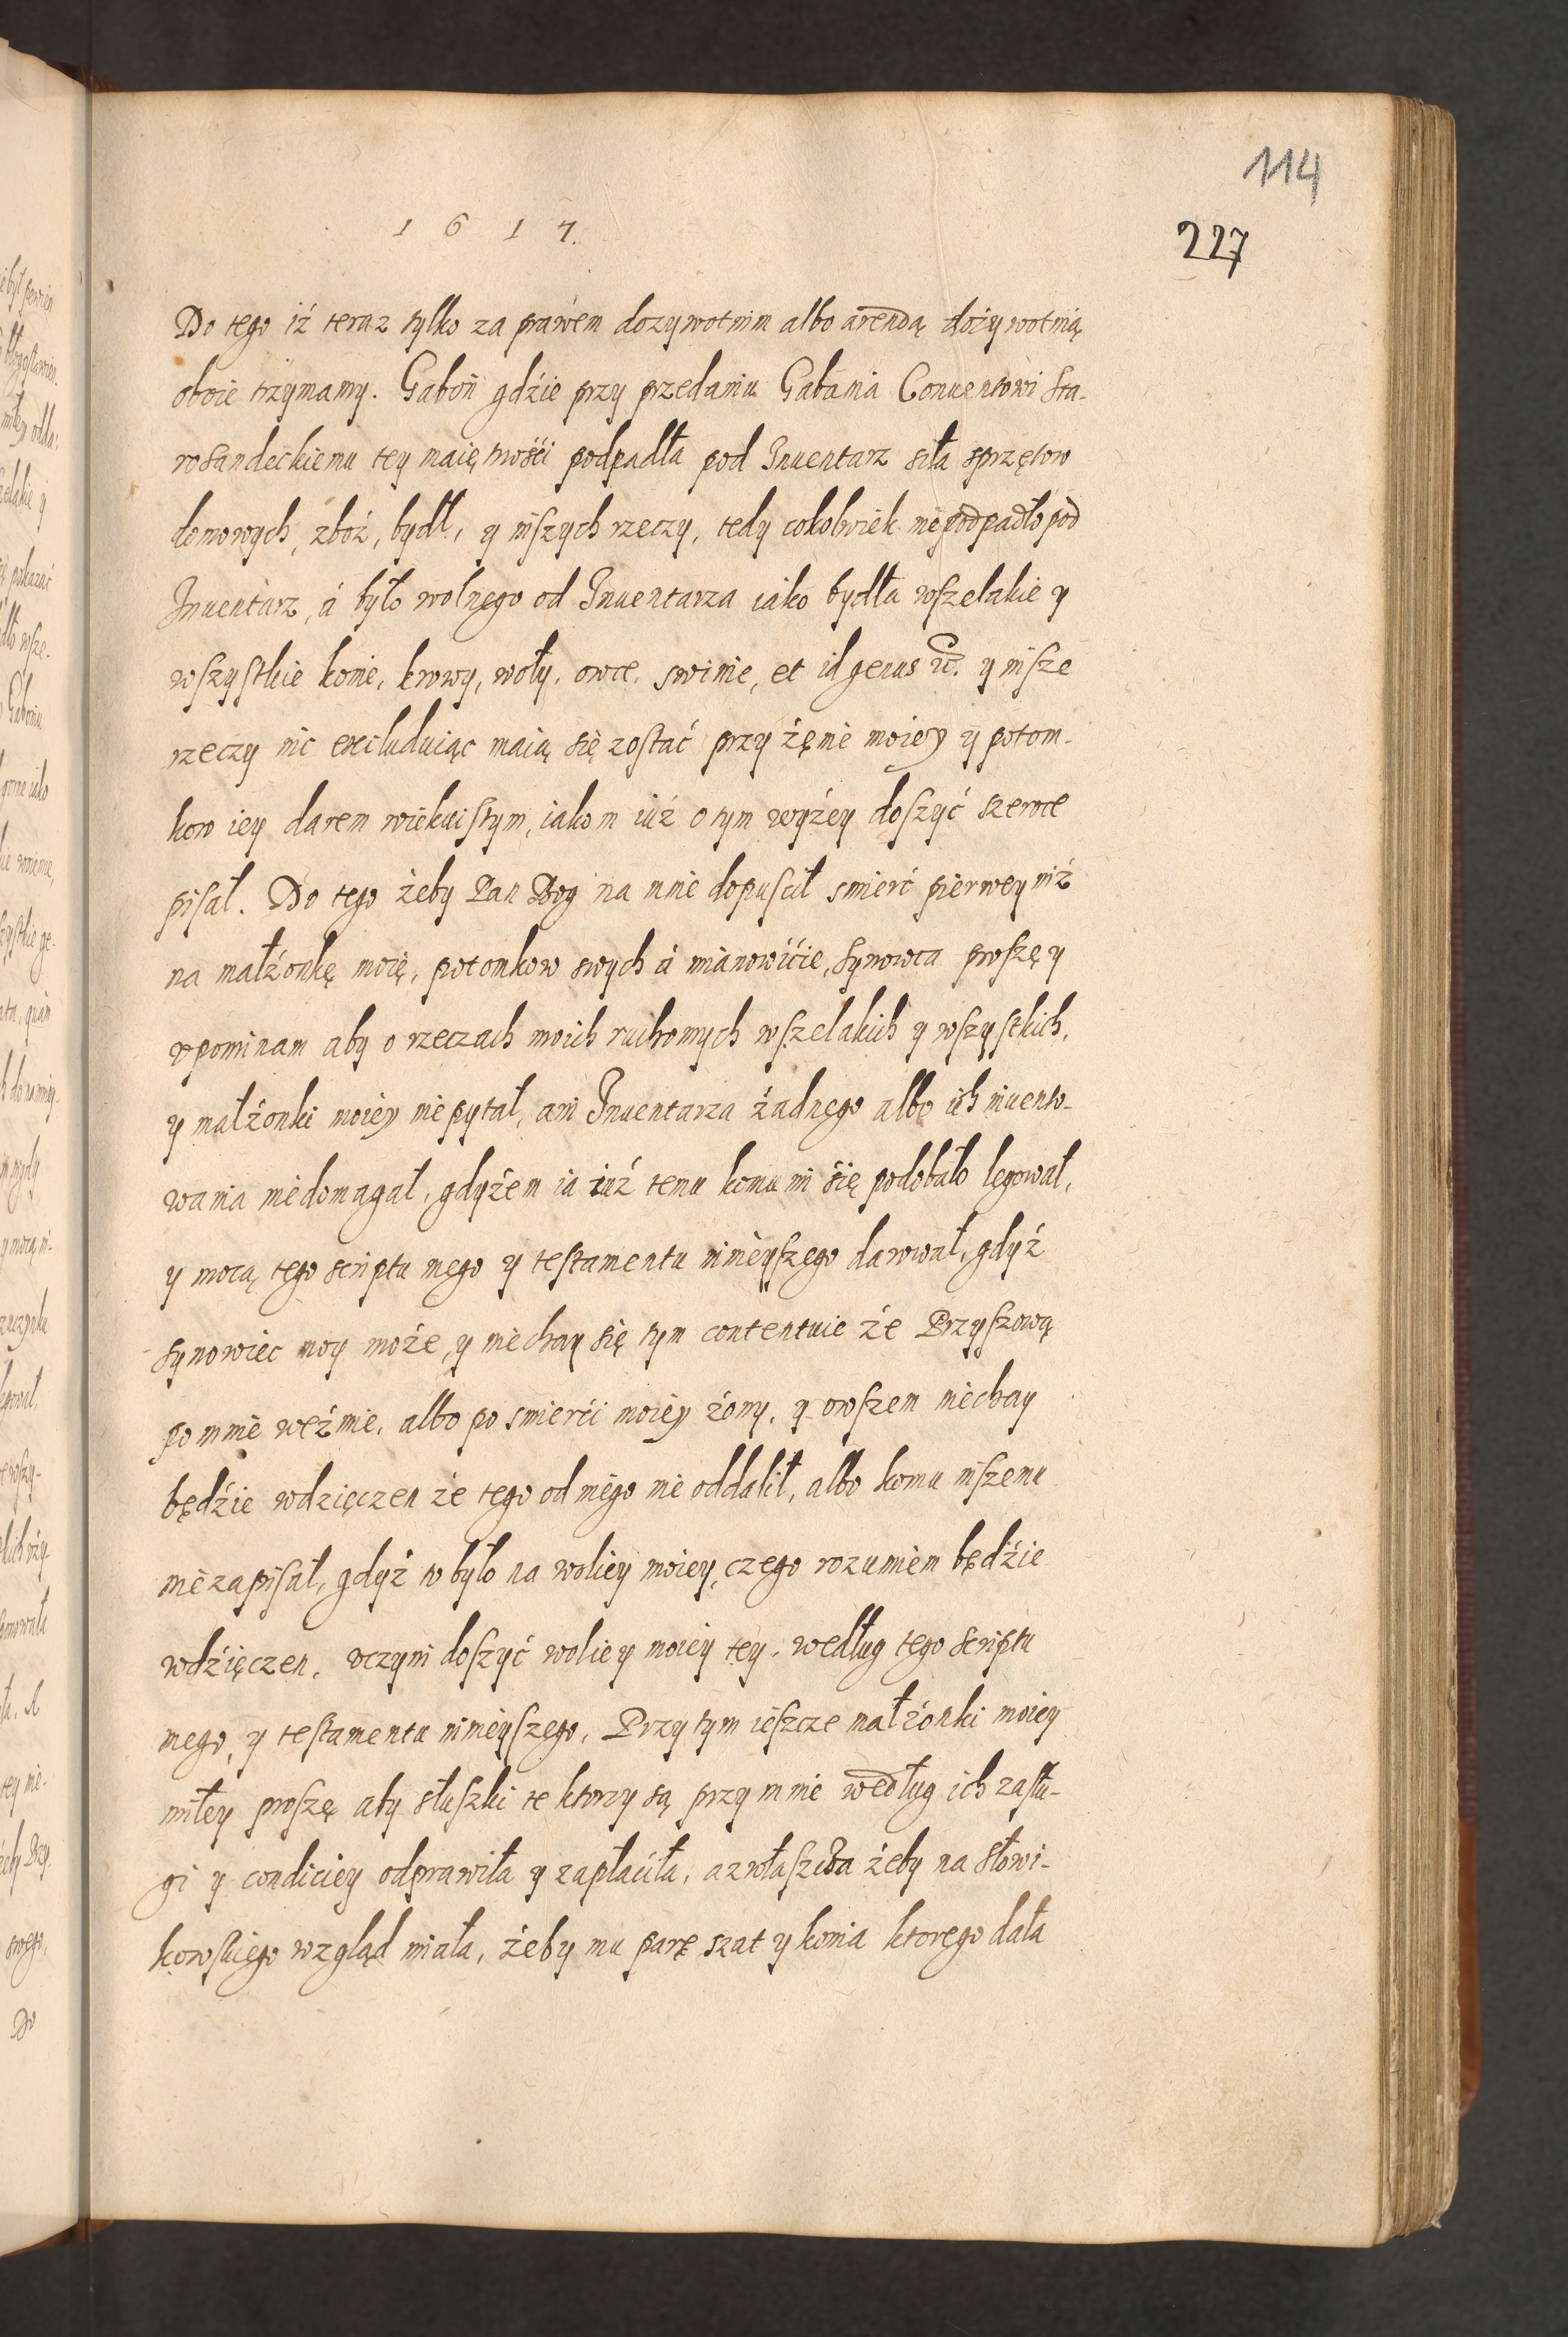 114
1617.
227
Do tego iż teraz tylko za prawem dozywotnim albo arendą dożywotnią
oboie trzymamy. Gaboń gdźie przy przedaniu Gabania Conuentowi Sta-
rosandeckiemu tey maiętnośći podpadła pod Inuentarz siła sprzętow
domowych, zboż, bydł, y inszych rzeczy, tedy cokolwiek nie podpadło pod
Inuentarz, á było wolnego od Inuentarza iako bydła wszelakie y
wszystkie konie, krowy, woły, owce, swinie, et id genus &c. y insze
rzeczy nic excluduiąc maią się zostać przy żęnie moiey y potom-
kow iey darem wiekuistym, iakom iuż o tym wyżey doszyć szeroce
pisał. Do tego żeby Pan Bog na mnie dopuscił smierć pierwey niż
na małżonkę moię, potomkow swych á mianowićie, Synowca proszę y
vpominam aby o rzeczach moich ruchomych wszelakich y wszystkich,
y małżonki moiey nie pytał, ani Inuentarza żadnego albo ich inuento-
wania nie domagał, gdyżem ia iuż temu komu mi śię podobało legował,
y mocą tego scriptu mego y testamentu ninieyszego darował, gdyż
Synowiec moy może, y niechay się tym contentuie że Przyszową
po mnie weźmie, albo po smierći moiey żony, y owszem niechay
będźie wdzięczen że tego od niego nie oddalił, albo komu inszemu
nie zapisał, gdyż to było na woliey moiey, czego rozumiem będźie
wdźięczen, vczyni doszyć woliey moiey tey, według tego scriptu
mego, y testamentu ninieyszego. Przy tym ieszcze małżonki moiey
miłey proszę aby słuszki te ktorzy są przy mnie według ich zasłu-
gi y condiciey odprawiła y zapłaciła, a zwłaszcza żeby na Słowi-
kowskiego wzgląd miała, żeby mu parę szat y konia ktorego dała